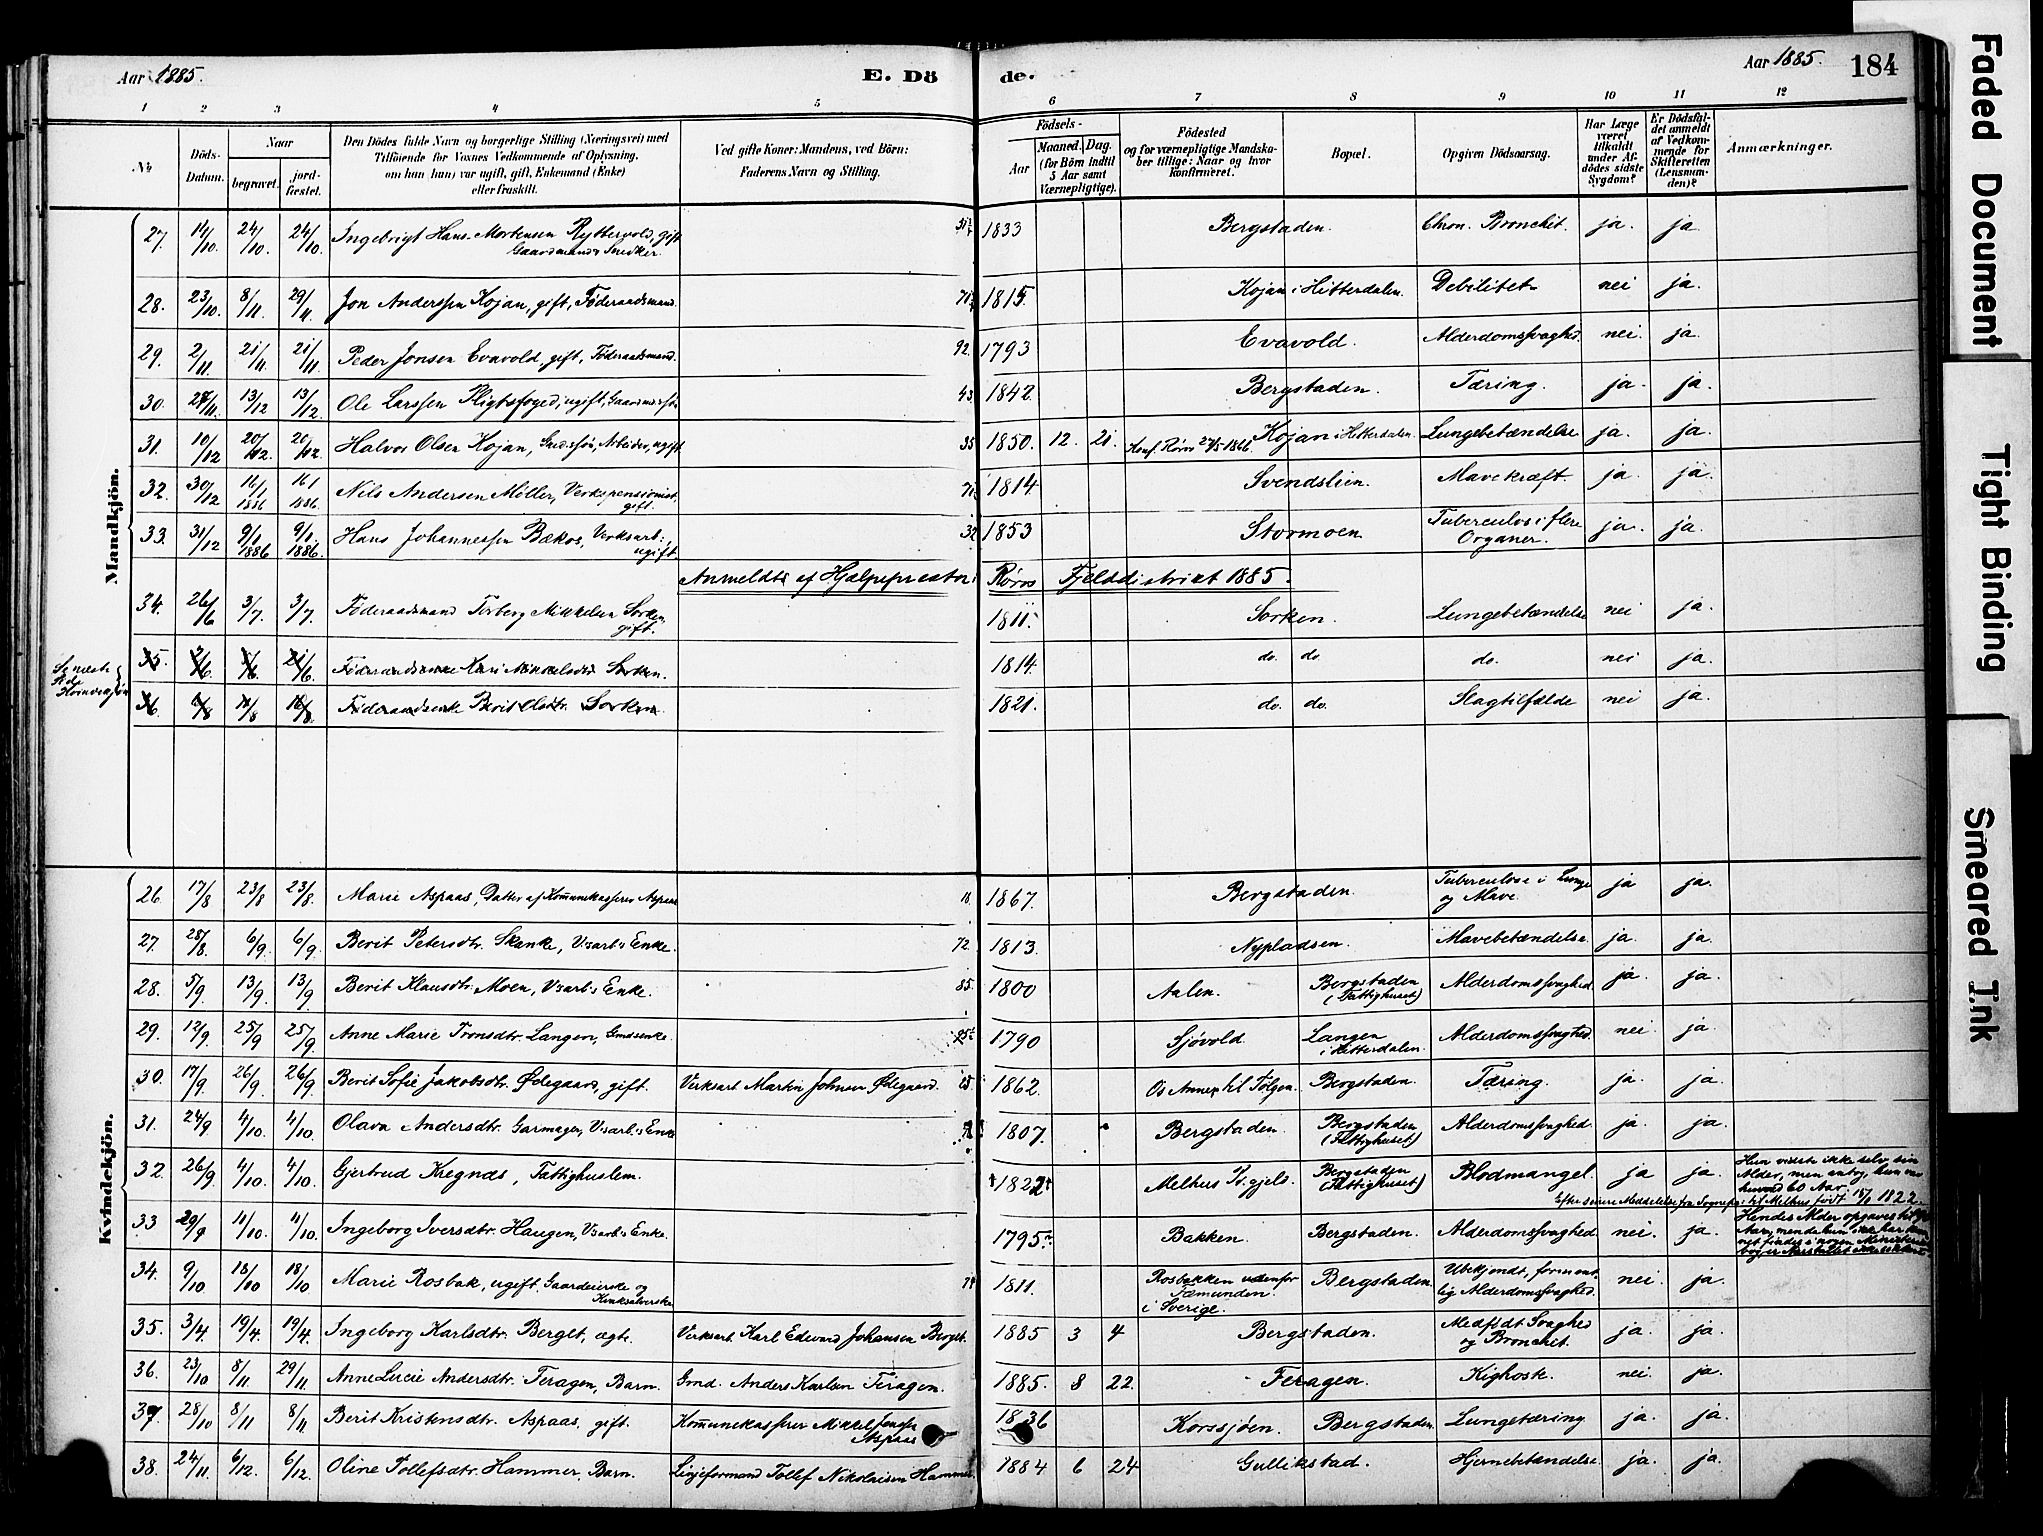 Aar 1885.
E. Dö
de.
Aar 1885.
184
1 2 3 4 5 6 7 8 9 10 11 12
No
Döds-Datum.
Naar
begravet.
jord-fæstet.
Den Dödes fulde Navn og borgerlige Stilling (Næringsvei) med
Tilföiende for Voxnes Vedkommende af Oplysning,
om han (hun) var ugift, gift, Enkemand (Enke)
eller fraskilt.
Ved gifte Koner: Mandens, ved Börn:
Faderens Navn og Stilling.
Födsels-
Aar
Maaned. Dag.
(for Börn indtil
5 Aar samt
Værnepligtige).
Födested
og for værnepligtige Mandska-
ber tillige: Naar og hvor
konfirmeret.
Bopæl.
Opgiven Dödsaarsag.
Har Læge
været
tilkaldt
under Af-
dödes sidste
Sygdom?
Er Dödsfal-
det anmeldt
af Vedkom-
mende for
Skifteretten
(Lensman-
den)?
Anmærkninger.
Mandkjön.
27. 14/10. 24/10. 24/10. Ingebrigt Hans Mortensen Ryttervold, gift 1833 Bergstaden. Chron. Bronchit. ja. ja.
Gaardmand & Snedker.
28. 23/10. 8/11. 29/11. Jon Anderssen Kojan, gift, Føderaadsmand. 1815. Kojan i Hitterdalen. Debilitet nei ja.
29. 2/11. 21/11. 21/11. Peder Jonsen Evavold, gift, Føderaadsmand. 92. 1793 Evavold. Alderdomssvaghed. nei. ja.
30. 27/11. 13/12 13/12. Ole Larssen Pligtsfoged, ugift, Gaardmandssøn 43 1842. Bergstaden. Tæring. ja. ja.
31. 10/12 20/12. 20/12. Halvor Olsen Kojan, Gmdssøn, Arbeider, ugift 35 1850. 12. 21. Konf. Røros 1866. Kojan i Hitterdalen. Lungebetændelse ja. ja.
32. 30/12 16/1 1886 16/1 1886. Nils Andersen Møller, Verkspensionist, gift. 71 1814 Svendslien. Mavekræft. ja. ja.
33. 31/12 9/1 1886 9/1 1886. Hans Johannessen Bækos, Verksarb:, ugift 32 1853 Stormoen Tuberculos i flere Organer. ja. ja.
Anmeldte af Hjælpepresten i Røros Fjelddistrict 1885.
34. 26/6 3/7. 3/7. Føderaadsmand Torberg Mikkelsen Sorken, gift. 1811. Sorken. Lungebetændelse nei ja.
Se næste Side
35. 21/6 Føderaadsenke Kari Mikkelsdtr Sorken. 1814. do. do. do. nei ja.
36. Føderaadsenke Berit Olsdtr. Sorken 1821. do. do. Slagtilfælde nei ja.
Kvindekjön.
26. 17/8 23/8 23/8. Marie Aspaas, Datter af Komunekasserer Aspaas 18. 1867. Bergstaden. Tuberculose i Lunge og Mave. ja ja.
27. 28/8. 6/9. 6/9. Berit Petersdtr. Skanke, V:sarb:s Enke. 72. 1813. Nypladsen. Mavebetændelse. ja. ja.
28. 5/9. 13/9. 13/9 Berit Klausdtr. Moen, V:sarb:s Enke. 85. 1800 Aalen. Bergstaden (Fattighuset) Alderdomssvaghed. ja. ja.
29. 12/9. 25/9 25/9. Anne Marie Tronsdtr. Langen, Gmdsenke. 1790 Sjøvold. Langen i Hitterdalen. Alderdomssvaghed. nei. ja.
30. 17/9. 26/9. 26/9. Berit Sofie Jakobsdtr. Ødegaard, gift. Verksarb Martin Johnsen Ødegaard. 1862. Os Annex til Tolgen. Bergstaden. Tæring. ja. ja.
31. 24/9 4/10. 4/10. Olava Andersdtr. Garmagen, V:sarb:s Enke 1807. Bergstaden. Bergstaden (Fattighuset) Alderdomssvaghed. ja. ja.
32. 26/9. 4/10. 4/10. Gjertrud Kregnæs, Fattighuslem. 1822 Melhus P. gjeld. Bergstaden (Fattighuset) Blodmangel. ja ja. Hun vidste ikke selv sin
Alder, men antog, hun var
60 Aar.
Efter senere Meddelelse fra Sognepr. i Melhus født 1822.
33 29/9 11/10. 11/10. Ingeborg Iversdtr. Haugen, V:sarb:s Enke. 1795. Bakken. Bergstaden. Alderdomssvaghed. nei. ja. Hendes Alder opgaves til
34. 9/10 18/10 18/10 Marie Rosbak, ugift, Gaardeierske og 74 1811. Rosbakken udenfor Fæmunden i Sverige. Bergstaden. Ubekjendt, forment- lig Alderdomssvaghed. nei. ja.
35. 3/4. 19/4. 19/4. Ingeborg Karlsdtr. Berget, ægte. Verksarb Karl Edvard Johansen Berget. 1885 3 4 Bergstaden. Medfødt Svaghed og Bronchit. ja. ja.
36. 23/10 8/11. 29/11. Anne Lucie Andersdtr. Feragen, Barn. Gmd. Anders Karlsen Feragen. 1885. 8 22. Feragen. Kighoste. nei. ja.
37. 28/10 8/11 8/11 Berit Kristensdtr. Aspaas, gift. Komunekasserer Mikkel Jensen Aspaas 1836 Korssjøen. Bergstaden. Lungetæring ja. ja.
38. 24/11. 6/12. 6/12. Oline Tollefsdtr. Hammer, Barn. Linjeformand Tollef Nikolaisen Hammer. 1884 6 24 Gullikstad. Hjernebetændelse. ja. ja.
Faded Document
Tight Binding
Smeared Ink